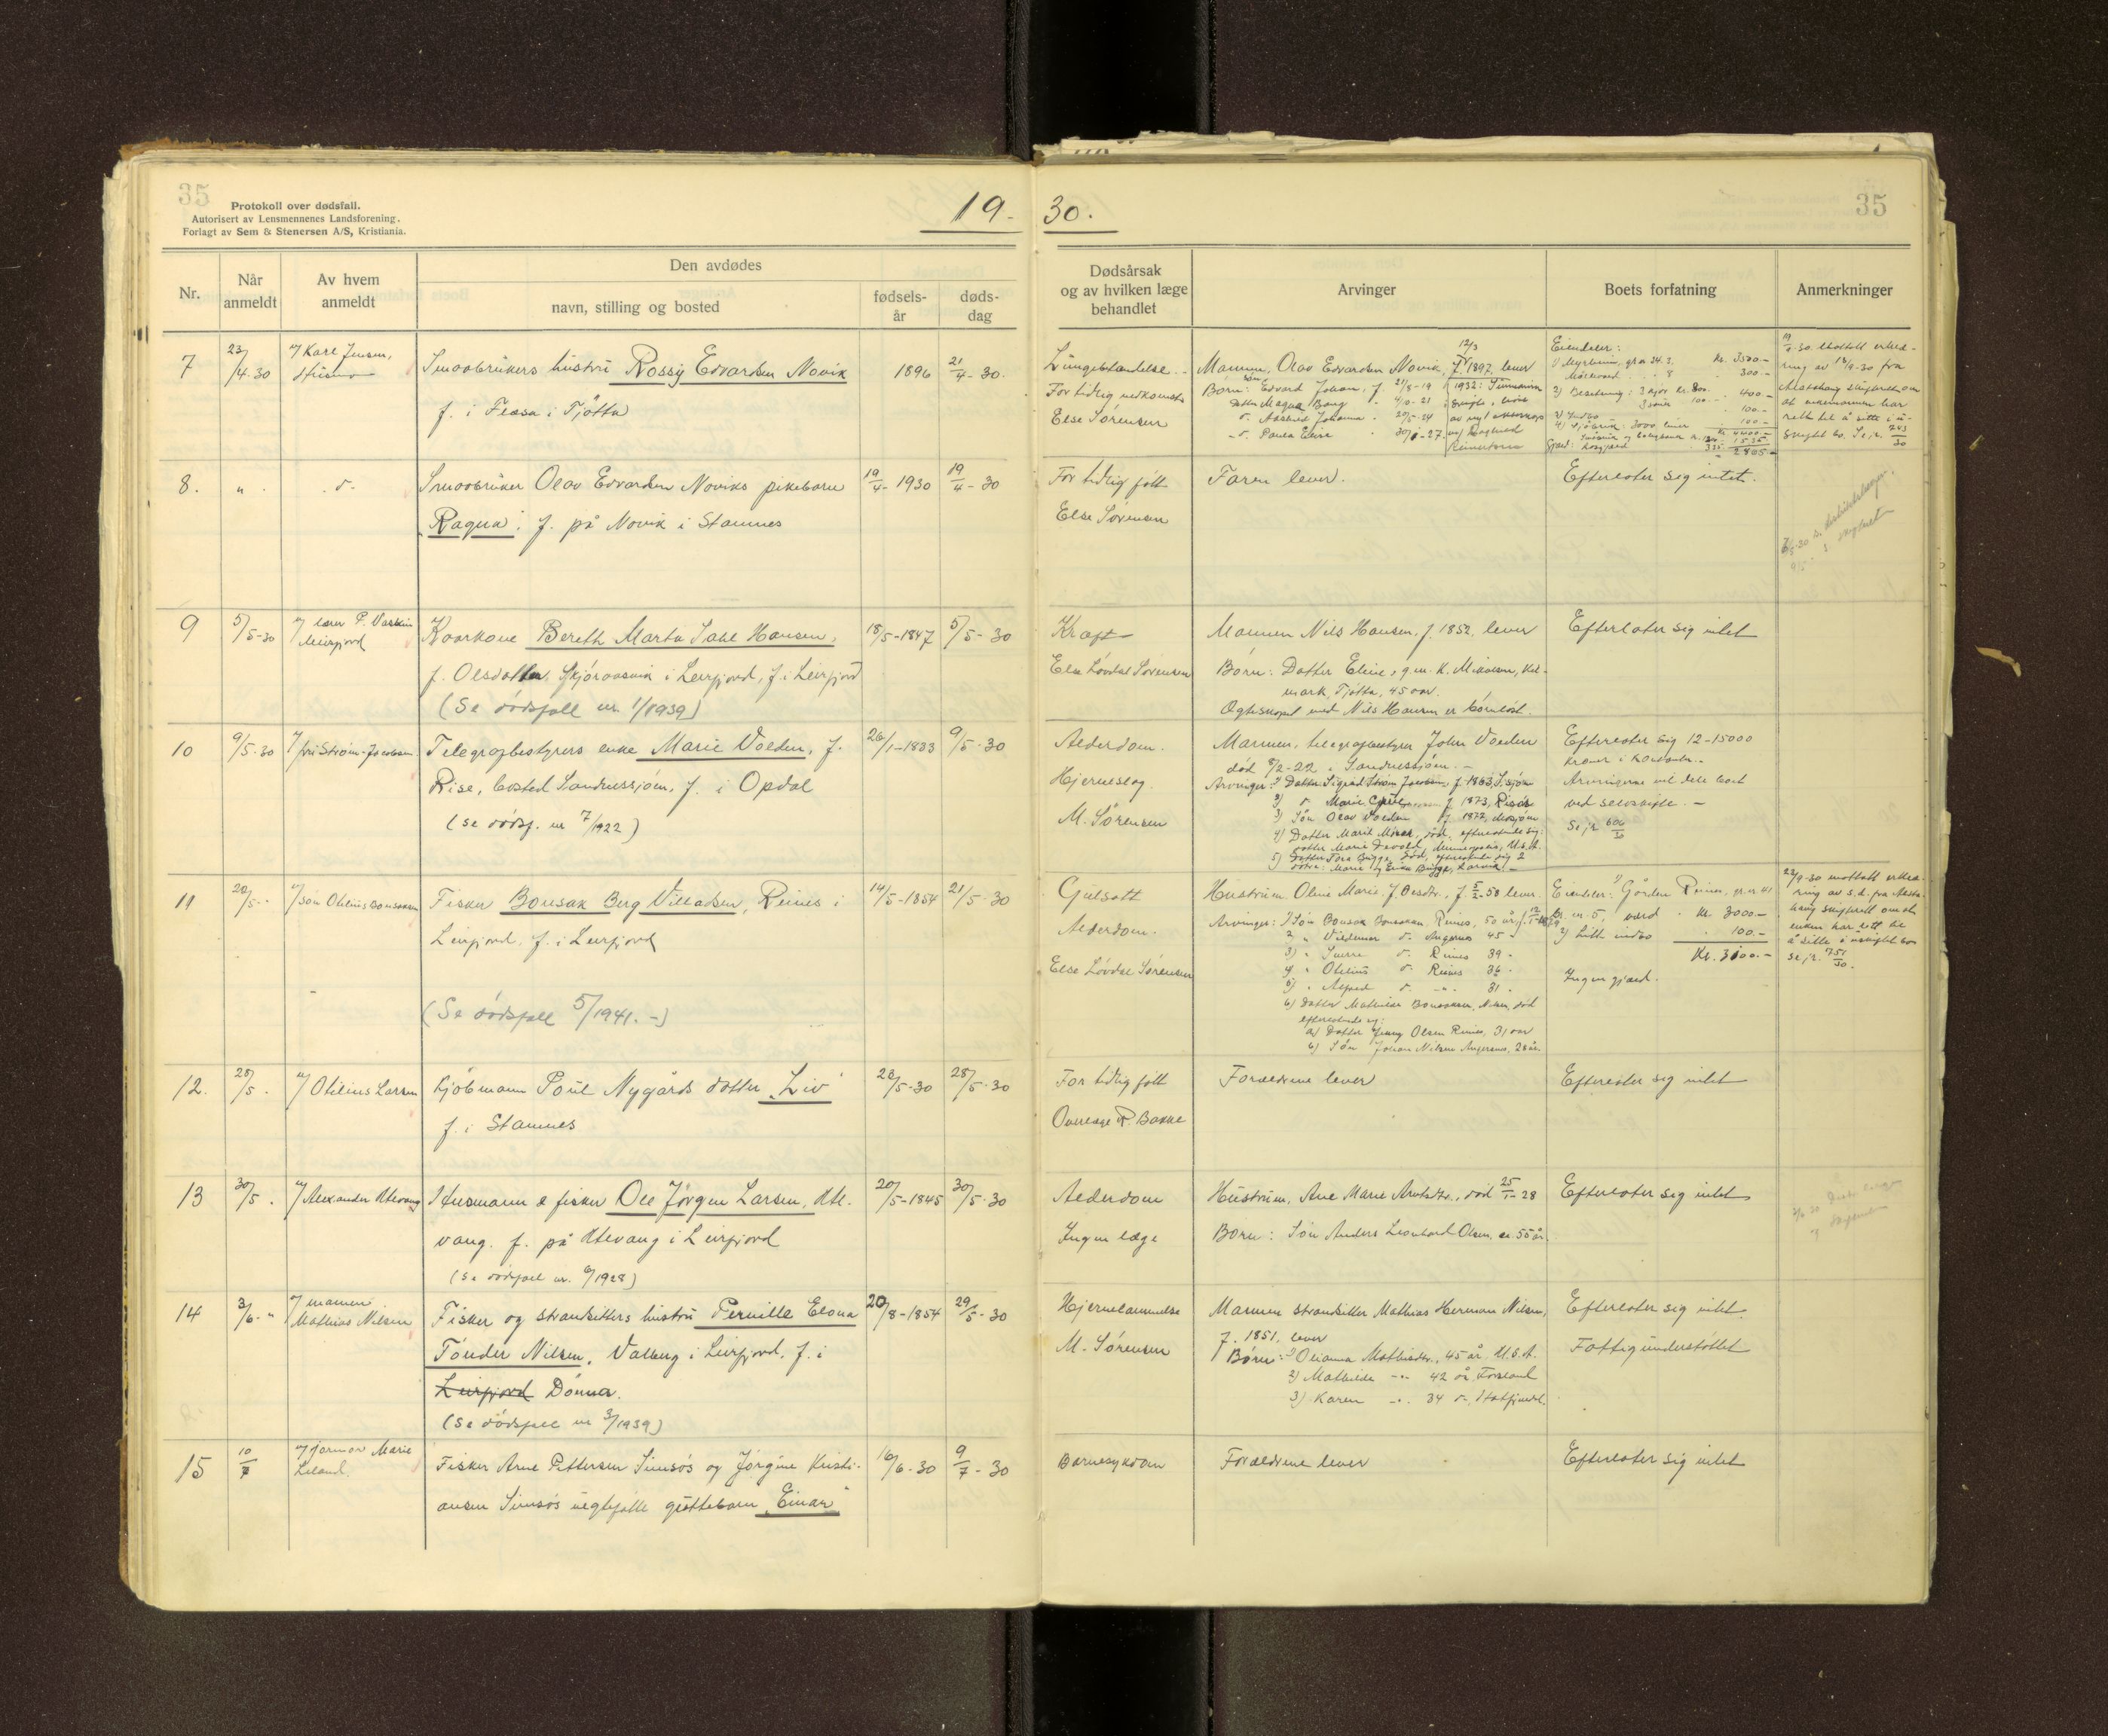 35
Protokoll over dødsfall.
Autorisert av Lensmennenes Landsforening.
Forlagt av Sem & Stenersen A/S, Kristiania.
19-30.
35
Nr.
Når anmeldt
Av hvem anmeldt
Den avdødes
navn, stilling og bosted
fødselsår
dødsdag
Dødsårsak og av hvilken læge behandlet
Arvinger
Boets forfatning
Anmerkninger
7
23/4.30
v/ Karl Jensen,
Smaabrukers hustru Rossy Edvardsen Novik
f. i Flæsa i Tjøtta
1896
21/4-30.
Lungebetændelse.
For tidlig nedkomst
Else Sørensen
Mannen, Olav Edvardsen Novik, f. 12/3 1897, lever
Børn: Søn Edvard Johan, f. 21/8-19
Datter Magna Borg 4/10-21
d. Aasta Johanna 20/5-24
d. Paula Elise
Eiendeler:
kr. 3500.-
300.-
400.-
100.-
100.-
Kr. 4400.-
1535
2865.-
19/9-30 mottatt erklæ-
ring av 18/9-30 fra
Alstahaug skifterett om
at enkemannen har
rett til å sitte i u-
skiftet bo. Se jr. 743/30
8.
" .
. d.
Smaabruker Olav Edvardsen Noviks pikebarn
"Ragna". f. på Novik i Stamnes
19/4-1930
19/4-30
For tidlig født
Else Sørensen
Faren lever.
Efterlater sig intet.
9
5/5-30
v/ lærer P. Vaskin
Leirfjord
Kaarkone Bereth Marta Sahl Hansen,
f. Olsdatter, Skjóraasvik i Leirfjord, f. i Leirfjord
(Se dødsfall nr. 1/1939)
18/5-1847
5/5-30
Kræft
Else Løvdal Sørensen
Mannen Nils Hansen, f. 1852, lever
Børn: Datter Eline, g.m. K. Mikalsen, Kil-
mark, Tjøtta, 45 aar.
Ægteskapet med Nils Hansen er barnløst.
Efterlater sig intet
10
9/5.30
v/ fru Strøm-Jacobsen
Telegrafbestyrers enke Marie Volden, f.
Rise, bosted Sandnessjøen, f. i Opdal
(se dødsf. nr 7/1922)
26/1-1833
9/5-30
Alderdom.
Hjerneslag
M. Sørensen
Mannen, telegrafbestyrer John Volden
død 8/2-22 i Sandnessjøen.-
Arvinger: 1) Datter Sigrid Strøm Jacobsen, f. 1863, S.sjøen
2) d. Marie f. 1873, Risør
3) Søn Olav Volden f. 1872, Mosjøen
4) Datter Marit Moser, død, efterlatende sig:
datter Marie Devold, Minneapolis, U.S.A.
5) Datter Tora Brigge, død, efterlatende sig 2
døtre: Marie og Erika Brigge, Larvik.-
Efterlater sig 12-15000
kroner i kontanter.
Arvingerne vil dele boet
ved selvskifte.-
Se jr. 606/30
11
20/5 -
v/ søn Otelius Bonsaksen
Fisker Bonsak Berg Villadsen, Reines i
Leirfjord, f. i Leirfjord
(Se dødsfall 5/1941.-)
14/5-1854
21/5-30
Gulsott
Alderdom.
Else Løvdal Sørensen
Hustruen Oline Marie f. Olsdtr., f. 5/2-58 lever
Arvinger: 1) Søn Bonsak Bonsaksen Reines, 50 år,
2 " Valdemar d. Angernes 45 -
3) " Sverre d. Reines 39 -
4) " Otelius d. Reines 36 -
5) " Alfred d. -"- 31 -
6) Datter Mathilde Bonsaksen Nilsen, død
efterlatende sig:
a) Datter Jenny Olsen Reines, 31 aar
b) Søn Johan Nilsen Angernes, 28 år
Eiendeler: 1) Gården Reines, gr.nr. 41
br. nr. 5, værd Kr. 3000.-
2) Litt indbo 100.-
Kr. 3100.-
Ingen gjæld.
22/9-30 mottatt erklæ-
ring av s.d. fra Alsta-
haug skifterett om at
enken har rett til
å sitte i uskiftet bo
Se jr. 751/30.
12.
28/5 .
v/ Otelius Larsen
Kjøbmann Poul Nygårds datter "Liv"
f. i Stamnes
28/5-30
28/5-30
For tidlig født
Overlæge R. Bakke
Forældrene lever
Efterlater sig intet
13
30/5 .
v/ Alexander Ulevang
Husmann & fisker Ole Jørgen Larsen, Ule-
vang. f. på Ulevang i Leirfjord
(se dødsfall nr. 6/1928)
20/5-1845
30/5-30
Alderdom
Ingen læge
Hustruen, Ane Marie Arntsdtr., død 25/1-28
Børn: Søn Anders Leonhard Olsen, ca. 55 år.
Efterlater sig intet
14
3/6 - "
v/ mannen
Mathias Nilsen
Fisker og strandsitters hustru Pernille Elona
Tønder Nilsen, Valberg i Leirfjord, f. i
Leirfjord Dønna.
(Se dødsfall nr 3/1939)
20/8-1854
29/5-30
Hjernelammelse
M. Sørensen
Mannen strandsitter Mathias Herman Nilsen,
f. 1851, lever
Børn: 1) Olianna Mathisdtr., 45 år, U.S.A.
2) Mathilde -"- 42 år, Forsland
3) Karen -"- 34 d.
Efterlater sig intet.
Fattigunderstøttet
15
10/7
v/ jormor Marie
Leland.
Fisker Arne Pettersen Simsøs og Jørgine Kristi-
ansen Simsøs uegtefødte guttebarn "Einar"
16/6-30
9/7-30
Barnesykdom
Forældrene lever
Efterlater sig intet